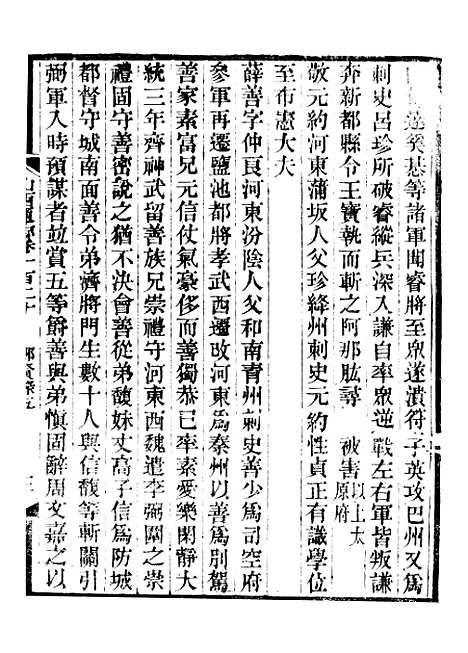 遂癸悲等諸軍聞睿將至眾遂潰符子英攻巴州又為
刺史呂珍所破睿縱兵深入謙自率眾逆戰左右軍皆叛謙
奔新都縣令王寶執而斬之阿那肱尋 被害以上太原府
敬元約河東蒲坂人父珍絳州刺史元約性貞正有識學位
至布憲大夫
薛善字仲良河東汾陰人父和南青州刺史善少為司空府
參軍再遷鹽池都將孝武西遷攺河東為泰州以善為別駕
善家素富兄元信仗氣豪侈而善獨恭已率素愛樂閑靜大
統三年齊神武留善族兄崇禮守河東西魏遣李弼圍之崇
禮固守善密說之猶不決會善從弟馥妹丈高子信為防城
都督守城南面善令弟濟將門生數十人與信馥等斬關引
弼軍入時預謀者竝賞五等爵善與弟慎固辭周文嘉之以
山西通志卷一百二十 鄉賢錄五 三